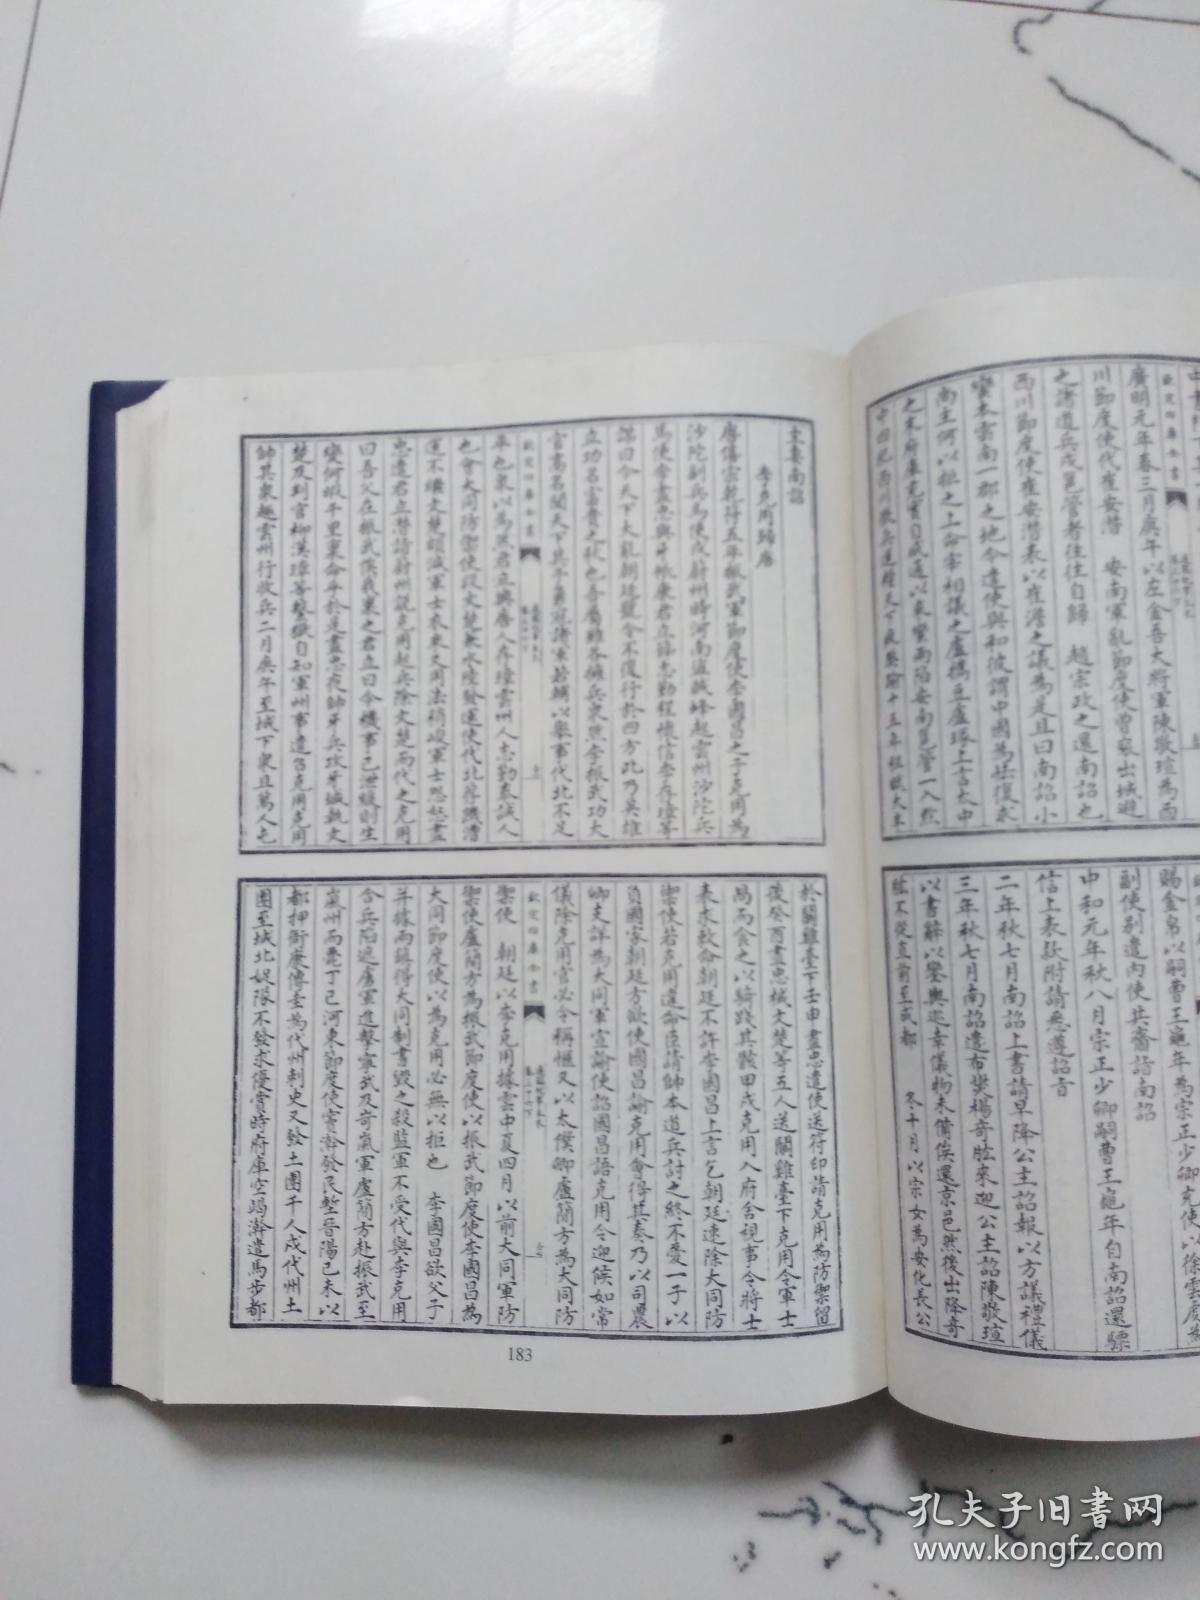 欽定四庫全書
廣明元年春三月庚午以左金吾大將軍陳敬瑄為西
川節度使代崔安潛 安南軍亂節度使曾袞出城避
之諸道兵戍邕管者往往自歸 趙宗政之還南詔也
西川節度使崔安潛表以崔澹之議為是且曰南詔小
蠻本雲南一郡之地今遣使與和彼謂中國為怯復求
尚主何以拒之上命宰相議之盧攜豆盧瑑上言大中
之末府庫充實自咸通以來蠻兩陷安南邕管一入黔
中四犯西川徵兵運糧天下疲弊踰十五年租賦大半
賜金帛以嗣曹王龜年為宗正少卿充使以徐雲虔為
副使別遣內使共齎詣南詔
中和元年秋八月宗正少卿嗣曹王龜年自南詔還驃
信上表款附請悉遵詔旨
二年秋七月南詔上書請早降公主詔報以方議禮儀
三年秋七月南詔遣布燮楊奇肱來迎公主詔陳敬瑄
以書辭以鑾輿巡幸儀物未備俟還京邑然後出降奇
肱不從直前至成都 冬十月以宗女為安化長公
主妻南詔
李克用歸唐
唐僖宗乾符五年振武軍節度使李國昌之子克用為
沙陀副兵馬使戍蔚州時河南盜賊蜂起雲州沙陀兵
馬使李盡忠與牙將康君立薛志勤程懷信李存璋等
謀曰今天下大亂朝廷號令不復行於四方此乃英雄
立功名富貴之秋也吾屬雖各擁兵衆然李振武功大
官高名聞天下其子勇冠諸軍若輔以舉事代北不足
欽定四庫全書
通鑑紀事本末
平也衆以為然君立興唐人存璋雲州人志勤奉誠人
也會大同防禦使段文楚兼水陸發運使代北荐饑漕
運不繼文楚頗減軍士衣米又用法稍峻軍士怨怒盡
忠遣君立潛詣蔚州說克用起兵除文楚而代之克用
曰吾父在振武俟我稟之君立曰今機事已泄緩則生
變何暇千里稟命乎於是盡忠夜帥牙兵攻牙城執文
楚及判官柳漢璋等繫獄自知軍州事遣召克用克用
帥其衆趣雲州行收兵二月庚午至城下衆且萬人屯
於鬭雞臺下壬申盡忠遣使送符印請克用為防禦留
後癸酉盡忠械文楚等五人送鬭雞臺下克用令軍士
冎而食之以騎踐其骸甲戌克用入府舍視事令將士
表求敕命朝廷不許李國昌上言乞朝廷速除大同防
禦使若克用違命臣請帥本道兵討之終不愛一子以
負國家朝廷方欲使國昌諭克用會得其奏乃以司農
卿支詳為大同軍宣諭使詔國昌語克用令迎候如常
儀除克用官必令稱愜又以太僕卿盧簡方為大同防
欽定四庫全書
通鑑紀事本末
禦使 朝廷以李克用據雲中夏四月以前大同軍防
禦使盧簡方為振武節度使以振武節度使李國昌為
大同節度使以為克用必無以拒也 李國昌欲父子
并據兩鎮得大同制書毀之殺監軍不受代與李克用
合兵陷遮虜軍進擊寧武及岢嵐軍盧簡方赴振武至
嵐州而薨丁己河東節度使竇澣發民塹晉陽己未以
都押衙康傳圭為代州刺史又發土團千人戍代州土
團至城北娖隊不發求優賞時府庫空竭澣遣馬步都
183
孔夫子旧书网
www.kongfz.com